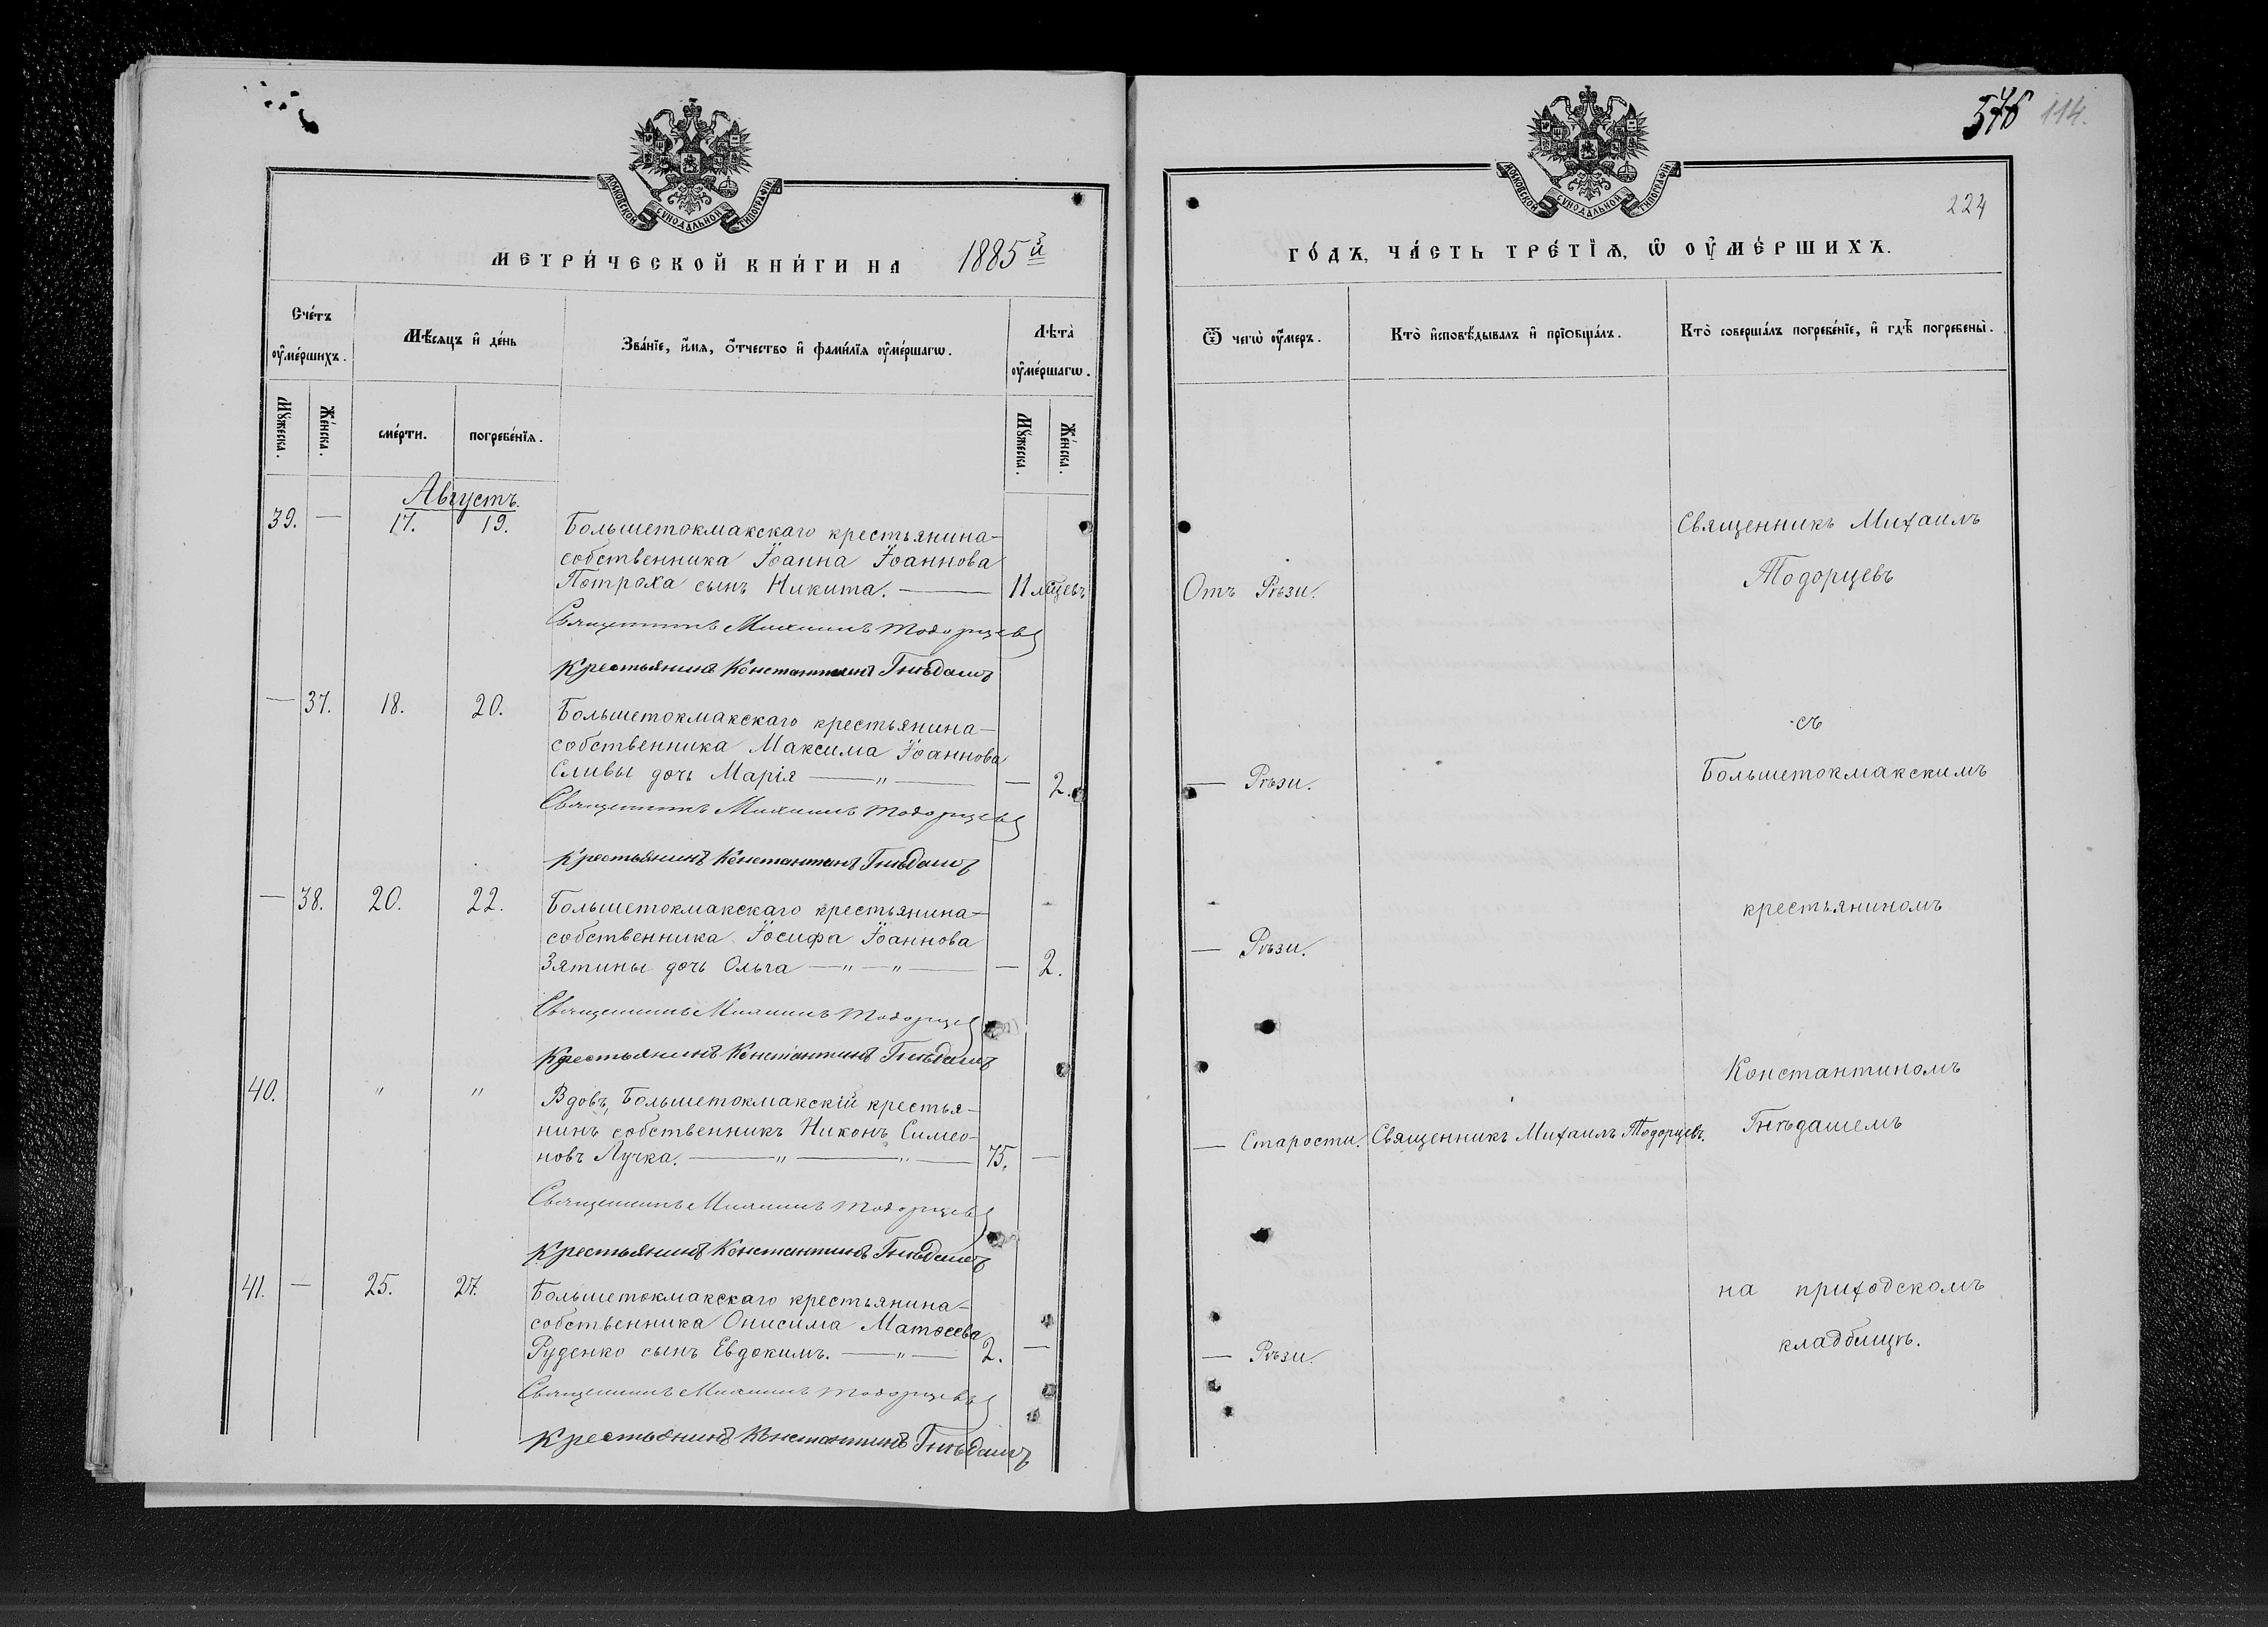 МОСКОВСКОЙ СѴНОДАЛЬНОЙ ТИПОГРАФІИ
МЕТРИ́ЧЕСКОЙ КНИ́ГИ НА 1885й
Сче́тъ оу҆ме́ршихъ.
Мѣ́сяцъ и҆ де́нь
Зва́нїе, и҆́мя, ѻ҆́тчество и҆ фами́лїя оу҆ме́ршагѡ.
Лѣта̀ оу҆ме́ршагѡ.
Мꙋ́жеска.
Же́нска.
сме́рти.
погребе́нїѧ.
Мꙋ́жеска.
Же́нска.
Августъ.
39. — 17. 19. Большетокмакскаго крестьянина-
собственника Іоанна Іоаннова
Потроха сынъ Никита. — 11 мѣсцевъ
Священникъ Михаилъ Тодорцевъ
Крестьянинъ Константинъ Гнѣдашъ
— 37. 18. 20. Большетокмакскаго крестьянина-
собственника Максима Іоаннова
Сливы дочь Марія — „ — — 2.
Священникъ Михаилъ Тодорцевъ
Крестьянинъ Константинъ Гнѣдашъ
— 38. 20. 22. Большетокмакскаго крестьянина-
собственника Іосифа Іоаннова
Зятины дочь Ольга — „ — „ — — 2.
Священникъ Михаилъ Тодорцевъ
Крестьянинъ Константинъ Гнѣдашъ
40. „ „ Вдовъ, Большетокмакскій крестья-
нинъ собственникъ Никонъ Симео-
новъ Лучка. — „ — „ — 75. —
Священникъ Михаилъ Тодорцевъ
Крестьянинъ Константинъ Гнѣдашъ
41. — 25. 27. Большетокмакскаго крестьянина-
собственника Онисима Матѳеева
Руденко сынъ Евдокимъ. — „ — 2. —
Священникъ Михаилъ Тодорцевъ
Крестьянинъ Константинъ Гнѣдашъ
114.
224
МОСКОВСКОЙ СѴНОДАЛЬНОЙ ТИПОГРАФІИ
ГО́ДЪ, ЧА́СТЬ ТРЕ́ТЇѦ, Ѡ҆ ОУ҆МЕ́РШИХЪ.
Ѿ чегѡ̀ оу҆́меръ.
Кто̀ и҆сповѣ́дывалъ и҆ прїѡбща́лъ.
Кто̀ соверша́лъ погребе́нїе, и҆ гдѣ̀ погребены̀.
Священникъ Михаилъ
Тодорцевъ
Отъ Рѣзи.
съ
Большетокмакскимъ
— Рѣзи.
крестьяниномъ
— Рѣзи.
Константиномъ
Гнѣдашемъ
— Старости. Священникъ Михаилъ Тодорцевъ.
на приходскомъ
кладбищѣ.
— Рѣзи.